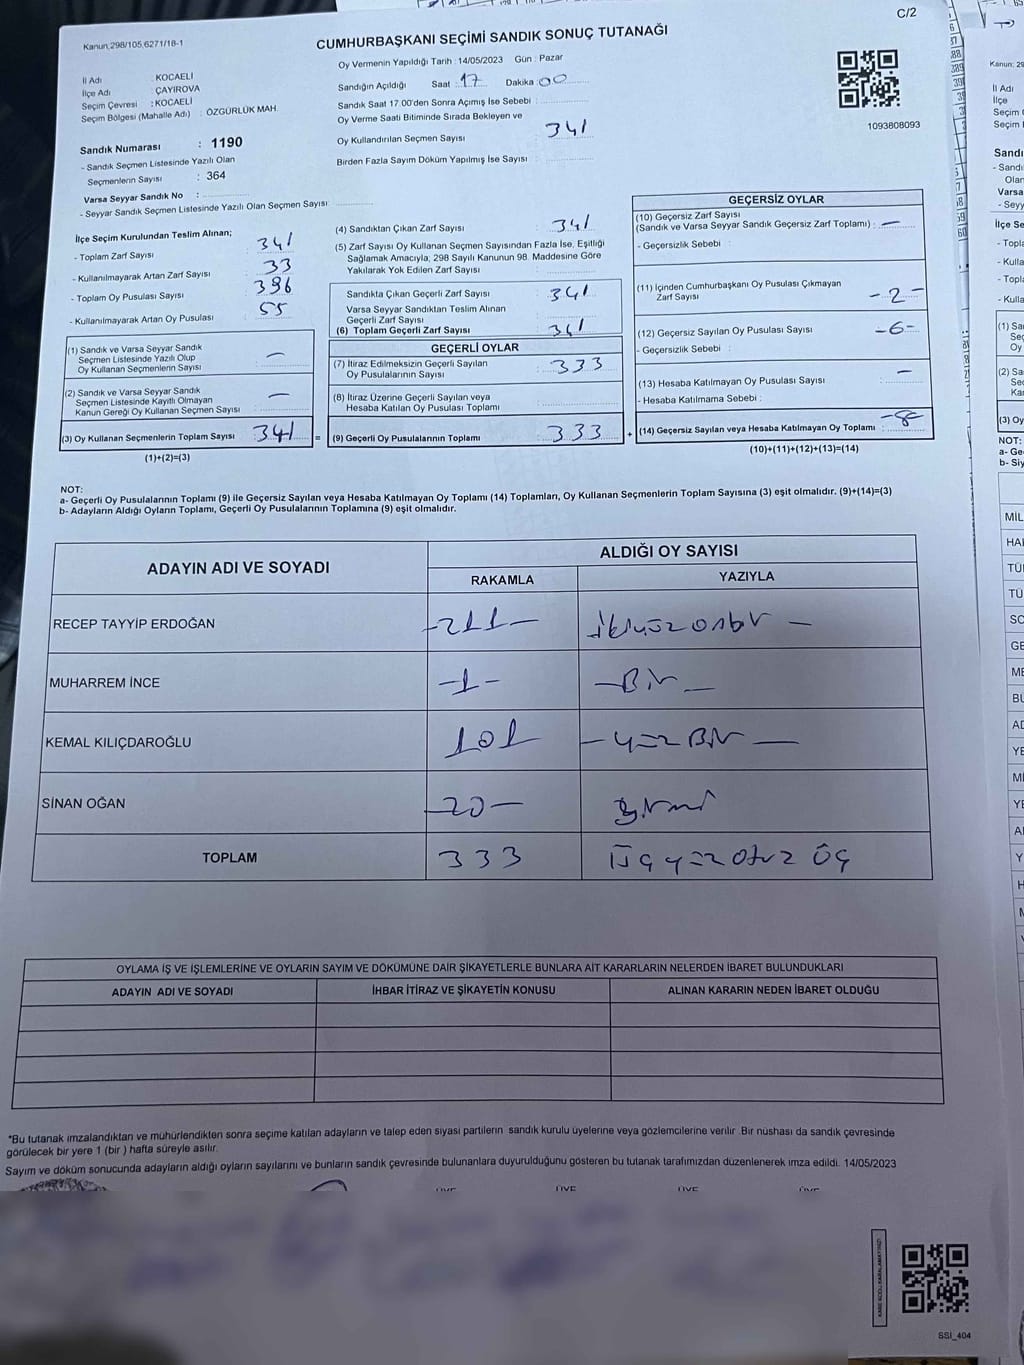 C/2
Kanun;298/105,6271/18-1
CUMHURBAŞKANI SEÇİMİ SANDIK SONUÇ TUTANAĞI
İl Adı KOCAELİ
İlçe Adı ÇAYIROVA
Seçim Çevresi : KOCAELİ
Seçim Bölgesi (Mahalle Adı) : ÖZGÜRLÜK MAH.
Sandık Numarası : 1190
- Sandık Seçmen Listesinde Yazılı Olan
Seçmenlerin Sayısı : 364
Varsa Seyyar Sandık No :
- Seyyar Sandık Seçmen Listesinde Yazılı Olan Seçmen Sayısı
Oy Vermenin Yapıldığı Tarih : 14/05/2023 Gün : Pazar
Sandığın Açıldığı Saat : 17 Dakika : 00
Sandık Saat 17.00'den Sonra Açımış İse Sebebi :
Oy Verme Saati Bitiminde Sırada Bekleyen ve
Oy Kullandırılan Seçmen Sayısı : 341
Birden Fazla Sayım Döküm Yapılmış İse Sayısı :
1093808093
İlçe Seçim Kurulundan Teslim Alınan;
- Toplam Zarf Sayısı : 341
- Kullanılmayarak Artan Zarf Sayısı : 33
- Toplam Oy Pusulası Sayısı : 396
- Kullanılmayarak Artan Oy Pusulası : 55
(1) Sandık ve Varsa Seyyar Sandık
Seçmen Listesinde Yazılı Olup
Oy Kullanan Seçmenlerin Sayısı : —
(2) Sandık ve Varsa Seyyar Sandık
Seçmen Listesinde Kayıtlı Olmayan
Kanun Gereği Oy Kullanan Seçmen Sayısı : —
(3) Oy Kullanan Seçmenlerin Toplam Sayısı : 341 =
(1)+(2)=(3)
(4) Sandıktan Çıkan Zarf Sayısı : 341
(5) Zarf Sayısı Oy Kullanan Seçmen Sayısından Fazla İse, Eşitliği
Sağlamak Amacıyla; 298 Sayılı Kanunun 98. Maddesine Göre
Yakılarak Yok Edilen Zarf Sayısı :
Sandıkta Çıkan Geçerli Zarf Sayısı : 341
Varsa Seyyar Sandıktan Teslim Alınan
Geçerli Zarf Sayısı :
(6) Toplam Geçerli Zarf Sayısı : 341
GEÇERLİ OYLAR
(7) İtiraz Edilmeksizin Geçerli Sayılan
Oy Pusulalarının Sayısı : 333
(8) İtiraz Üzerine Geçerli Sayılan veya
Hesaba Katılan Oy Pusulası Toplamı :
(9) Geçerli Oy Pusulalarının Toplamı : 333 +
GEÇERSİZ OYLAR
(10) Geçersiz Zarf Sayısı
(Sandık ve Varsa Seyyar Sandık Geçersiz Zarf Toplamı) : —
- Geçersizlik Sebebi :
(11) İçinden Cumhurbaşkanı Oy Pusulası Çıkmayan
Zarf Sayısı : -2-
(12) Geçersiz Sayılan Oy Pusulası Sayısı : -6-
- Geçersizlik Sebebi :
(13) Hesaba Katılmayan Oy Pusulası Sayısı : —
- Hesaba Katılmama Sebebi :
(14) Geçersiz Sayılan veya Hesaba Katılmayan Oy Toplamı : -8-
(10)+(11)+(12)+(13)=(14)
NOT:
a- Geçerli Oy Pusulalarının Toplamı (9) ile Geçersiz Sayılan veya Hesaba Katılmayan Oy Toplamı (14) Toplamları, Oy Kullanan Seçmenlerin Toplam Sayısına (3) eşit olmalıdır. (9)+(14)=(3)
b- Adayların Aldığı Oyların Toplamı, Geçerli Oy Pusulalarının Toplamına (9) eşit olmalıdır.
ADAYIN ADI VE SOYADI ALDIĞI OY SAYISI
RAKAMLA YAZIYLA
RECEP TAYYİP ERDOĞAN -211- ikiyüzonbir -
MUHARREM İNCE -1- -Bir-
KEMAL KILIÇDAROĞLU 101 -yüzBir-
SİNAN OĞAN -20- yirmi
TOPLAM 333 Üçyüzotuz üç
OYLAMA İŞ VE İŞLEMLERİNE VE OYLARIN SAYIM VE DÖKÜMÜNE DAİR ŞİKAYETLERLE BUNLARA AİT KARARLARIN NELERDEN İBARET BULUNDUKLARI
ADAYIN ADI VE SOYADI İHBAR İTİRAZ VE ŞİKAYETİN KONUSU ALINAN KARARIN NEDEN İBARET OLDUĞU
*Bu tutanak imzalandıktan ve mühürlendikten sonra seçime katılan adayların ve talep eden siyasi partilerin sandık kurulu üyelerine veya gözlemcilerine verilir. Bir nüshası da sandık çevresinde
görülecek bir yere 1 (bir ) hafta süreyle asılır.
Sayım ve döküm sonucunda adayların aldığı oyların sayılarını ve bunların sandık çevresinde bulunanlara duyurulduğunu gösteren bu tutanak tarafımızdan düzenlenerek imza edildi. 14/05/2023
ÜYE ÜYE ÜYE ÜYE
SSİ_404